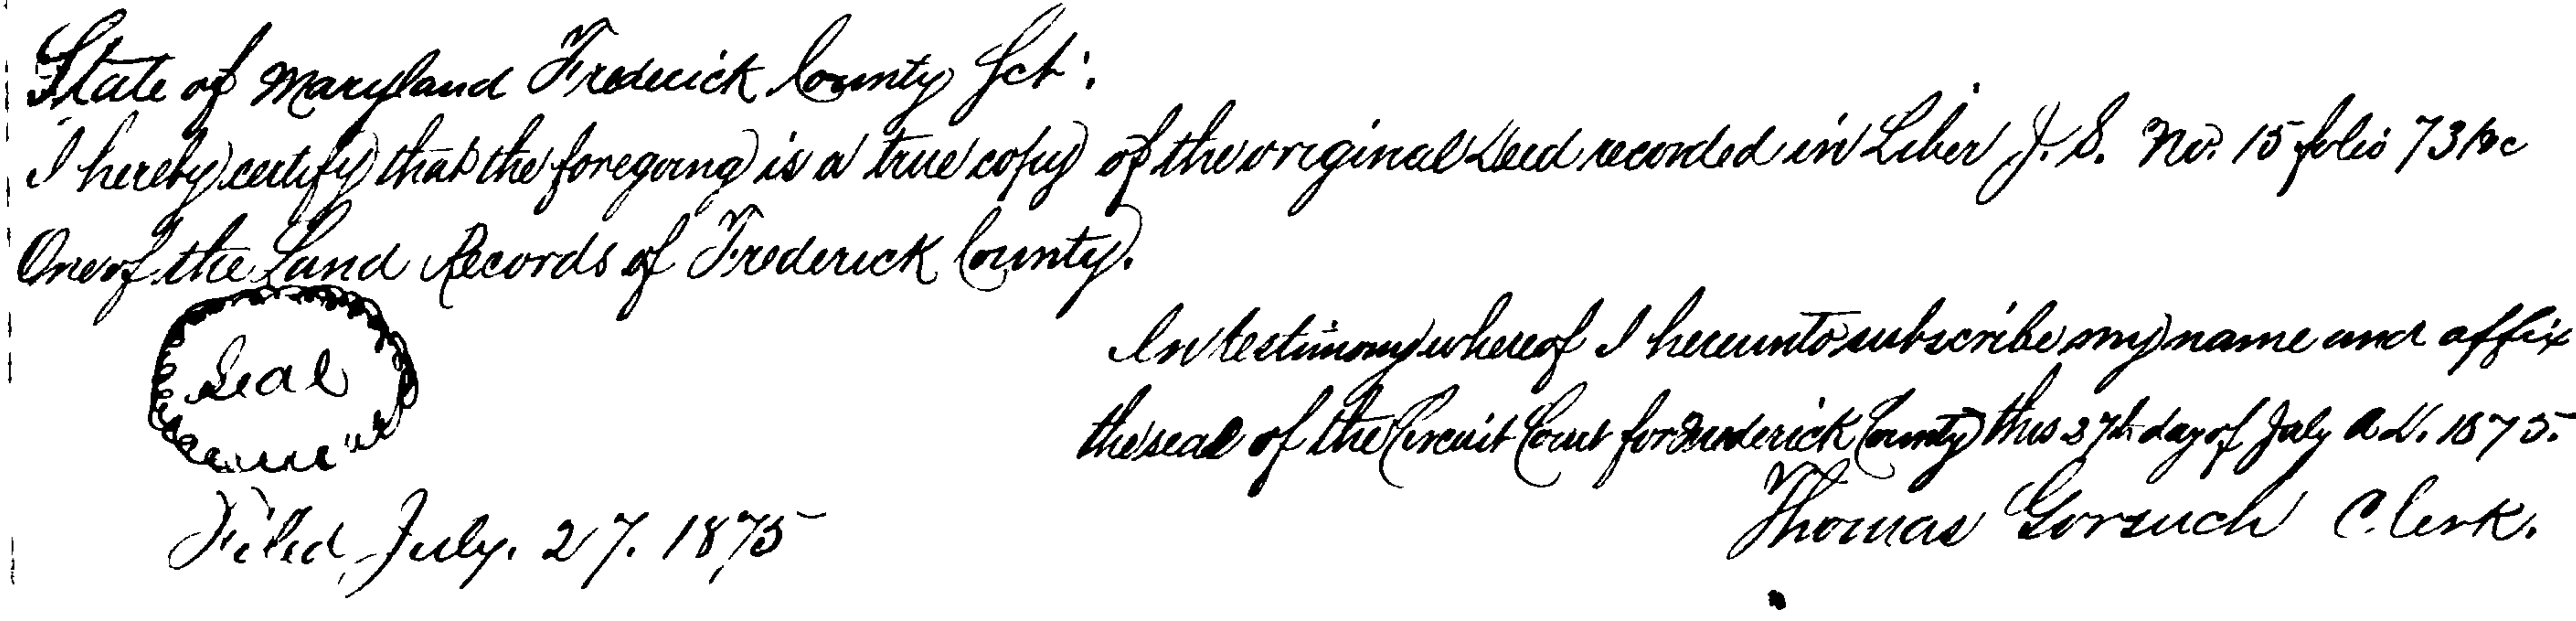 State of Maryland Frederick County Sct.
I hereby certify that the foregoing is a true copy of the original Deed recorded in Liber J. S. No. 15 folio 73 &c
One of the Land Records of Frederick County.
In testimony whereof I hereunto subscribe my name and affix
Seal
the seal of the Circuit Court for Frederick County this 27th day of July A.D. 1875.
Thomas Gorsuch Clerk.
Filed July. 27. 1875